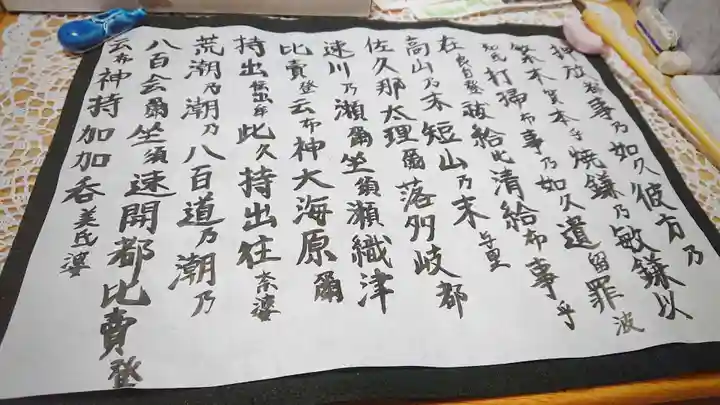 押放事乃如久彼方乃
繁木賀本乎焼鎌乃敏鎌以
氐打掃布事乃如久遺留罪波
在良自登祓給比清給布事乎
高山乃末短山乃末与里
佐久那太理爾落多岐都
速川乃瀬爾坐須瀬織津
比賣登云布神大海原爾
持出傳出牟此久持出往奈婆
荒潮乃潮乃八百道乃潮乃
八百会爾坐須速開都比賣登
云布神持加加呑美氐婆